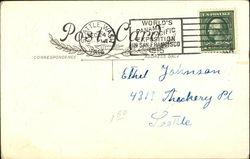 Post Card
SEATTLE, WASH.
WORLD'S
PANAMA-PACIFIC
EXPOSITION
IN SAN FRANCISCO
1915
CORRESPONDENCE
ADDRESS ONLY
Ethel Johnson
4315 Thackery Pl
Seattle